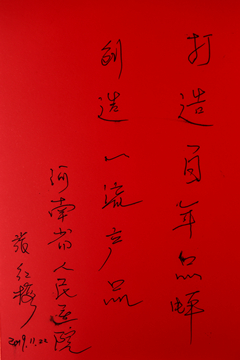 打造百年品牌
创造一流产品
河南省人民医院
张红梅
2019.11.02